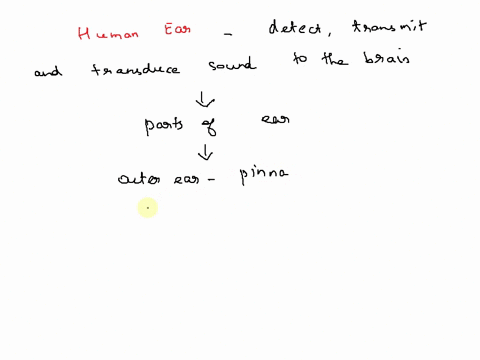 Human Ear - detect, transmit
and transduce sound to the brain
parts of ear
outer ear - pinna